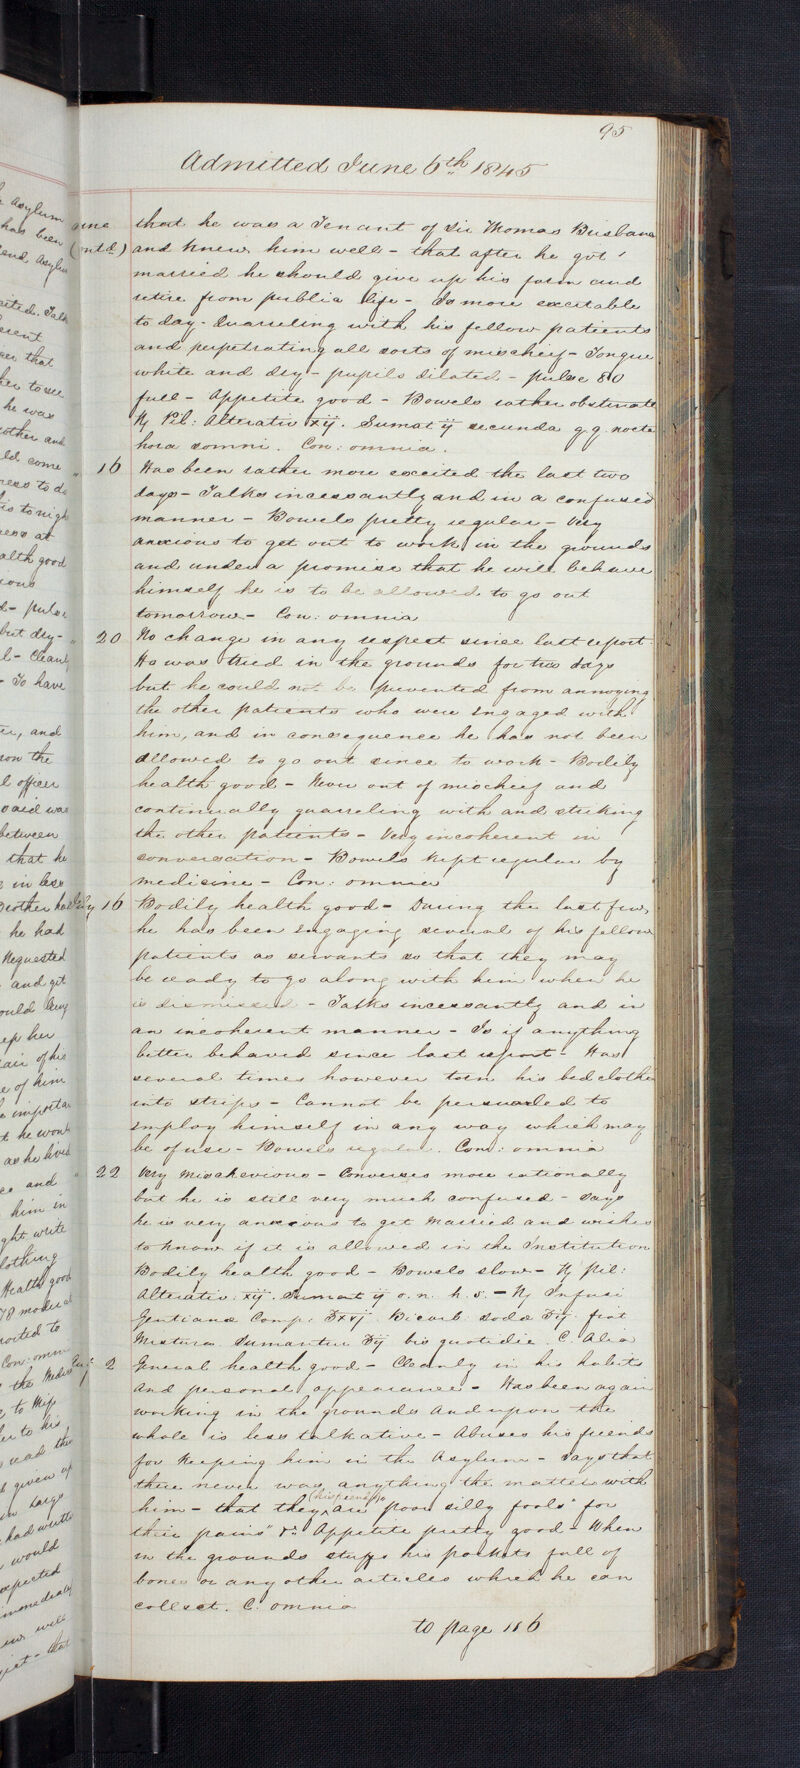 95
Admitted June 6th 1845
June that he was a Tenant of Sir Thomas Brisbane
(contd) and knew him well - that after he got
married he should give up his farm and
retire from public life - Is more excitable
to day - Quarreling with his fellow patients
and perpetrating all sorts of mischief - Tongue
white and dry - pupils dilated - pulse 80
full - Appetite good - Bowels rather obstinate
℞ Pil: Alterativ xij. Sumat ij secunda q.q. nocte
hora somni. Con: omnia.
" 16 Has been rather more excited the last two
days - Talks incessantly and in a confused
manner - Bowels pretty regular - Very
anxious to get out to work in the grounds
and under a promise that he will behave
himself he is to be allowed to go out
tomorrow - Con: omnia
" 20 No change in any respect since last report.
He was tried in the grounds for two days
but he could not be prevented from annoying
the other patients who were engaged with
him, and in consequence he has not been
allowed to go out since to work - Bodily
health good - Never out of mischief and
continually quarreling with and striking
the other patients - Very incoherent in
conversation - Bowels kept regular by
medicine - Con: omnia
July 16 Bodily health good - During the last few
he has been engaging several of his fellow
patients as servants so that they may
be ready to go along with him when he
is dismissed - Talks incessantly and in
an incoherent manner - Is if anything
better behaved since last report - Has
several times however torn his bed clothes
into strips - Cannot be persuaded to
employ himself in any way which may
be of use - Bowels regular. Con: omnia
" 22 Very mischevious - Converses more rationally
but he is still very much confused - says
he is very anxious to get married and wishes
to know if it is allowed in the Institution
Bodily health good - Bowels slow - ℞ Pil:
Alterativ: xij. Sumat ij o.n. h.s. - ℞ Infusi
Gentianæ Comp: Bicarb: sodæ fiat
Mistura Sumantur bis quotidie. C. Alia
Aug: 2 General health good - Cleanly in his habits
and personal appearance - Has been again
working in the grounds and upon the
whole is less talkative - Abuses his friends
for keeping him in the Asylum - says that
there never was anything the matter with
him - that they (his friends) are "poor silly fools" for
their pains" &c Appetite pretty good - When
in the grounds stuffs his pockets full of
bones or any other articles which he can
collect. C: omnia
to page 186